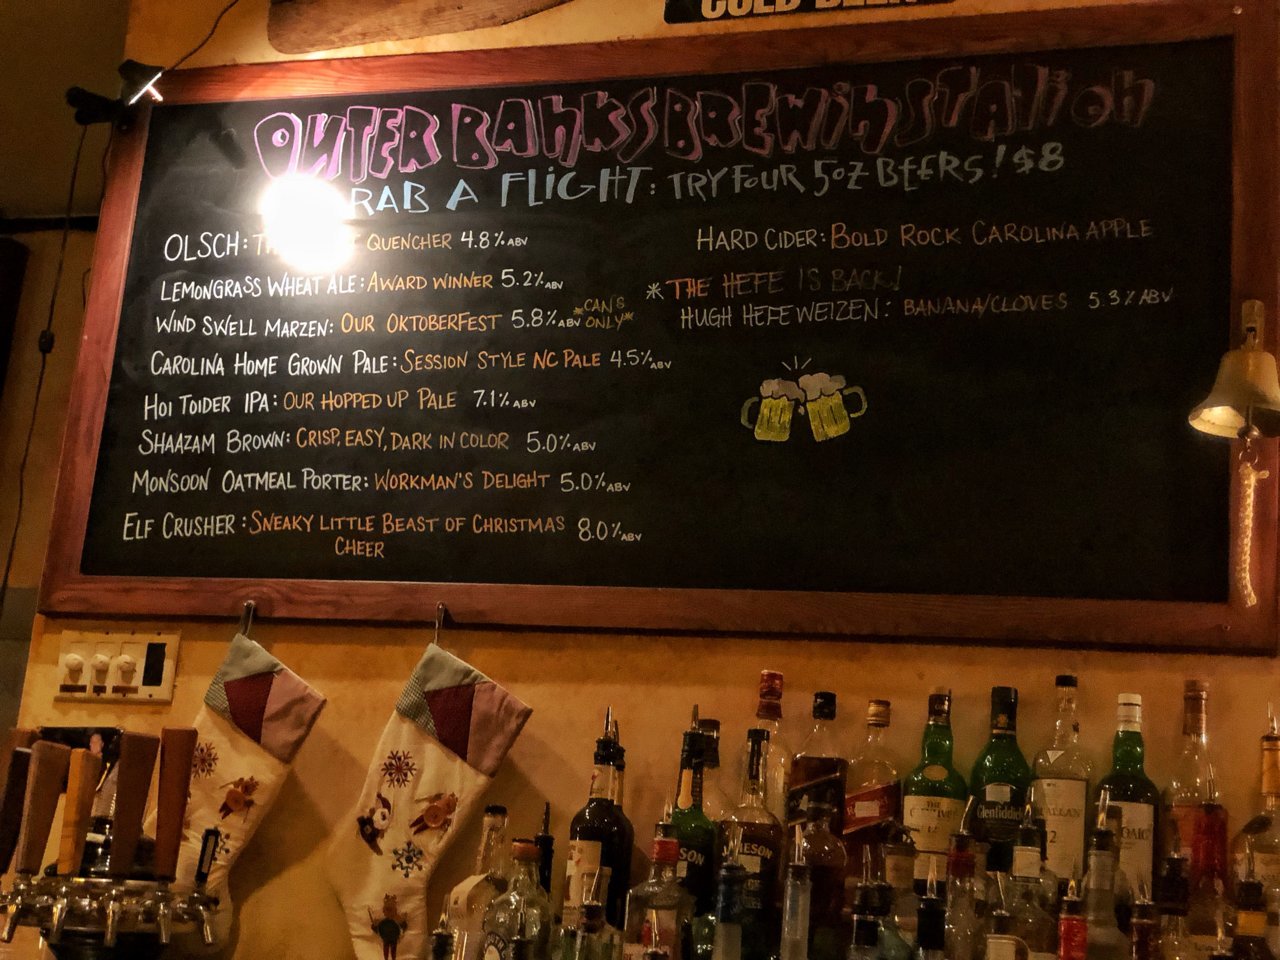 COLD BEER
OUTER BANKS BREWING STATION
GRAB A FLIGHT: TRY FOUR 5OZ BEERS! $8
OLSCH: QUENCHER 4.8% ABV
LEMONGRASS WHEAT ALE: AWARD WINNER 5.2% ABV
WIND SWELL MARZEN: OUR OKTOBERFEST 5.8% ABV *CANS ONLY*
CAROLINA HOME GROWN PALE: SESSION STYLE NC PALE 4.5% ABV
HOI TOIDER IPA: OUR HOPPED UP PALE 7.1% ABV
SHAAZAM BROWN: CRISP, EASY, DARK IN COLOR 5.0% ABV
MONSOON OATMEAL PORTER: WORKMAN'S DELIGHT 5.0% ABV
ELF CRUSHER: SNEAKY LITTLE BEAST OF CHRISTMAS 8.0% ABV
CHEER
HARD CIDER: BOLD ROCK CAROLINA APPLE
*THE HEFE IS BACK!
HUGH HEFEWEIZEN: BANANA/CLOVES 5.3% ABV
Glenfiddich
12
JAMESON